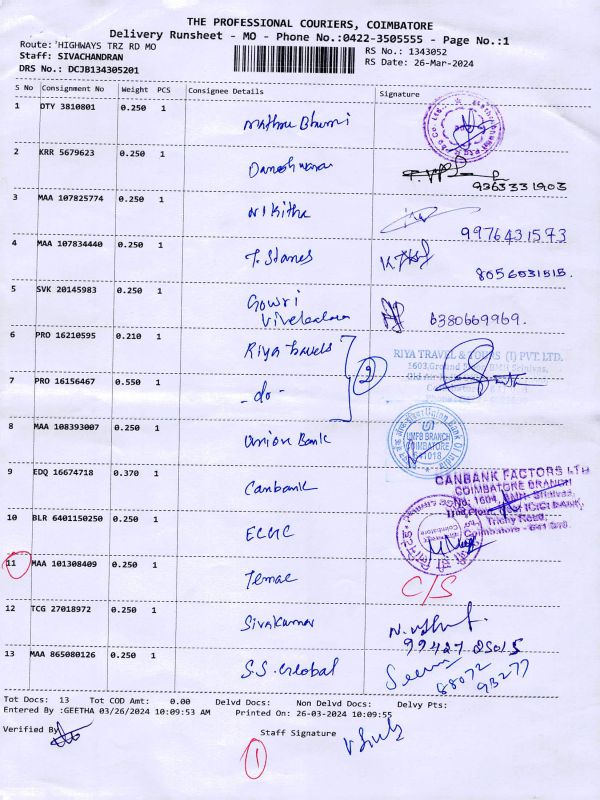 THE PROFESSIONAL COURIERS, COIMBATORE
Delivery Runsheet - MO - Phone No.:0422-3505555 - Page No.:1
Route: 'HIGHWAYS TRZ RD MO
RS No.: 1343052
Staff: SIVACHANDRAN
RS Date: 26-Mar-2024
DRS No.: DCJB134305201
S No Consignment No Weight PCS Consignee Details Signature
1 DTY 3810801 0.250 1
Mathru Bhumi
2 KRR 5679623 0.250 1
9263331903
3 MAA 107825774 0.250 1
Nikitha
9976431573
4 MAA 107834440 0.250 1
T. Stanes
8056031515.
5 SVK 20145983 0.250 1
Gowri
6380669969.
6 PRO 16210595 0.210 1
Riya travels
RIYA TRAVEL & TOURS (I) PVT. LTD.
7 PRO 16156467 0.550 1
- do -
2
8 MAA 108393007 0.250 1
Union Bank
Union Bank Of India
UMFB BRANCH
COIMBATORE
9 EDQ 16674718 0.370 1
Canbank
CANBANK FACTORS LTD
COIMBATORE BRANCH
10 BLR 6401150250 0.250 1
ECGC
Trichy Road,
11 MAA 101308409 0.250 1
Temac
C/S
12 TCG 27018972 0.250 1
Sivakumar
99427 25015
13 MAA 865080126 0.250 1
S.S. Global
88072
93277
Tot Docs: 13 Tot COD Amt: 0.00 Delvd Docs: Non Delvd Docs: Delvy Pts:
Entered By :GEETHA 03/26/2024 10:09:53 AM Printed On: 26-03-2024 10:09:55
Verified By
Staff Signature
1